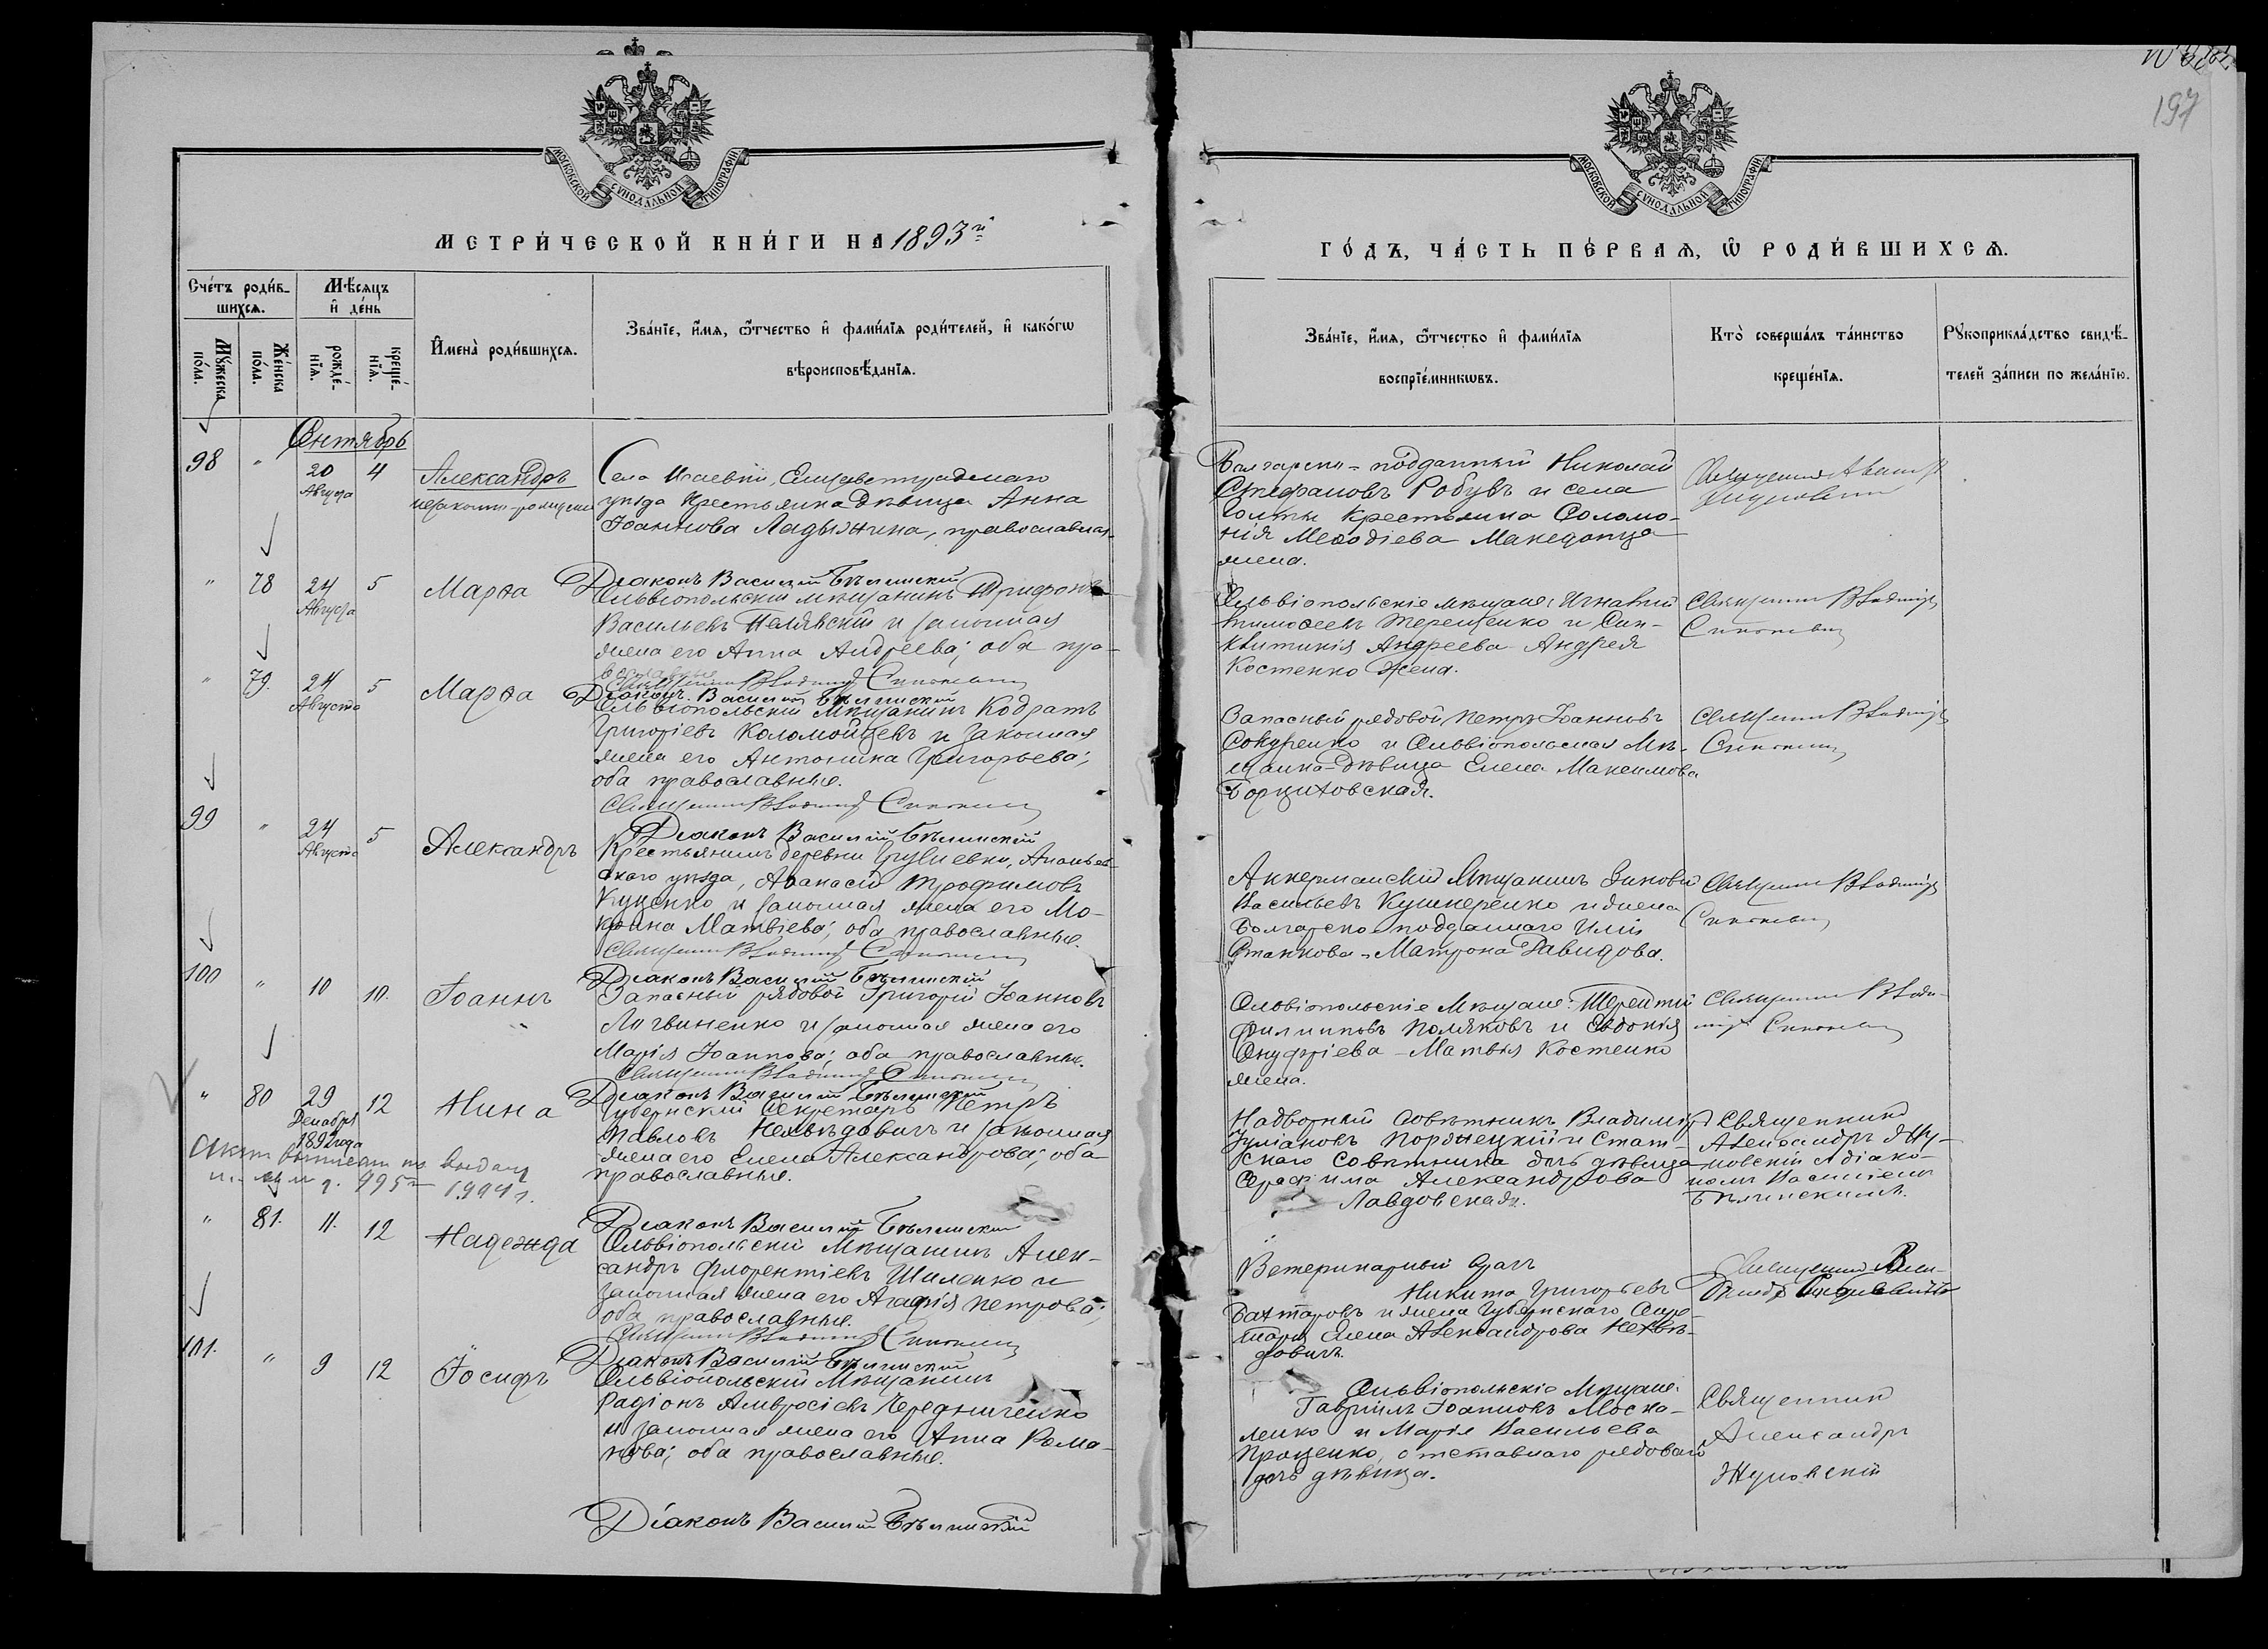 197
МОСКОВСКОЙ СѴНОДАЛЬНОЙ ТИПОГРАФІИ
МОСКОВСКОЙ СѴНОДАЛЬНОЙ ТИПОГРАФІИ
МЕТРИ́ЧЕСКОЙ КНИ́ГИ НА 1893й
ГО́ДЪ, ЧА́СТЬ ПЕ́РВАЯ, Ѽ РОДИ́ВШИХСѦ.
Сче́тъ роди́в-
шихсѧ.
Мꙋ́жеска по́ла.
Же́нска по́ла.
Мѣ́сѧцъ
и҆ де́нь
рожде́-
нїѧ.
креще́-
нїѧ.
И҆мена̀ роди́вшихсѧ.
Зва́нїе, и҆́мѧ, ѻ҆́тчество и҆ фами́лїѧ роди́телей, и҆ како́гѡ
вѣроисповѣ́данїѧ.
Зва́нїе, и҆́мѧ, ѻ҆́тчество и҆ фами́лїѧ
воспрїе́мникѡвъ.
Кто̀ соверша́лъ та́инство
креще́нїѧ.
Рꙋкоприкла́дство свидѣ́-
телей за́писи по жела́нїю.
Сентябрь
98 " 20 Августа 4
Александръ
незаконно-рожденъ
Села Исаевки, Елисаветградскаго
уѣзда крестьянка дѣвица Анна
Іоаннова Ладыжина, православная
Діаконъ Василій Бѣлинскій
Болгарско-подданный Николай
Стефановъ Робувъ и села
Голты крестьянина Соломо-
нія Меѳодіева Македонца
жена.
" 78 24 Августа 5
Марѳа
Ольвіопольскій мѣщанинъ Трифонъ
Васильевъ Пелявскій и законная
жена его Анна Андреева; оба пра-
вославные
Священникъ Владиміръ
Діаконъ Василій Бѣлинскій
Ольвіопольскіе мѣщане: Игнатій
Тимоѳеевъ Терещенко и Син-
клитикія Андреева Андрея
Костенко жена.
Священникъ Владиміръ
" 79. 24 Августа 5
Марѳа
Ольвіопольскій мѣщанинъ Кодратъ
Григоріевъ Коломойцевъ и законная
жена его Антонина Григорьева;
оба православные.
Священникъ Владиміръ
Діаконъ Василій Бѣлинскій
Запасный рядовой Петръ Іоанновъ
и Ольвіопольская мѣ-
щанка-дѣвица Елена Максимова
Борщховская.
Священникъ Владиміръ
99 " 24 Августа 5
Александръ
Крестьянинъ деревни Ананьев-
скаго уѣзда, Аѳанасій Трофимовъ
Куценко и законная жена его Мо-
крина Матвіева; оба православные.
Священникъ Владиміръ
Діаконъ Василій Бѣлинскій
Аккерманскій мѣщанинъ Зиновій
Васильевъ Кушнеренко и жена
Болгарско-подданнаго Иліи
Станкова - Матрона Давидова.
Священникъ Владиміръ
100 " 10 10.
Іоаннъ
Запасный рядовой Григорій Іоанновъ
Логвиненко и законная жена его
Марія Іоаннова; оба православные.
Священникъ Владиміръ
Діаконъ Василій Бѣлинскій
Ольвіопольскіе мѣщане: Терентій
Филипповъ Поляковъ и Евдокія
Онуфріева - Матвѣя Костенко
жена.
Священникъ Влади-
міръ
" 80 29 Декабря 1892 года 12
Нина
Губернскій Секретарь Петръ
Павловъ Нехвѣдовичъ и законная
жена его Елена Александрова; оба
православные.
Діаконъ Василій Бѣлинскій
Надворный Совѣтникъ Владиміръ
Іуліановъ Порднецкій и Стат-
скаго Совѣтника дочь дѣвица
Серафима Александрова
Лавдовская.
Священникъ
Александръ Жу-
ковскій съ діако-
номъ Василіемъ
Бѣлинскимъ.
" 81. 11. 12
Надежда
Ольвіопольскій мѣщанинъ Алек-
сандръ Флорентіевъ Шиленко и
законная жена его Агафія Петрова;
оба православные.
Священникъ Владиміръ
Діаконъ Василій Бѣлинскій
Ветеринарный врачъ
Никита Григорьевъ
Бахтаровъ и жена Губернскаго Секре-
таря Елена Александрова Нехвѣ-
довичъ.
101. " 9 12
Іосифъ
Ольвіопольскій мѣщанинъ
Радіонъ Амвросіевъ Чередниченко
и законная жена его Анна Рома-
нова; оба православные.
Діаконъ Василій Бѣлинскій
Ольвіопольскіе мѣщане:
Гавріилъ Іоанновъ Моска-
ленко и Марія Васильева
Проценко, отставнаго рядоваго
дочь дѣвица.
Священникъ
Александръ
Жуковскій